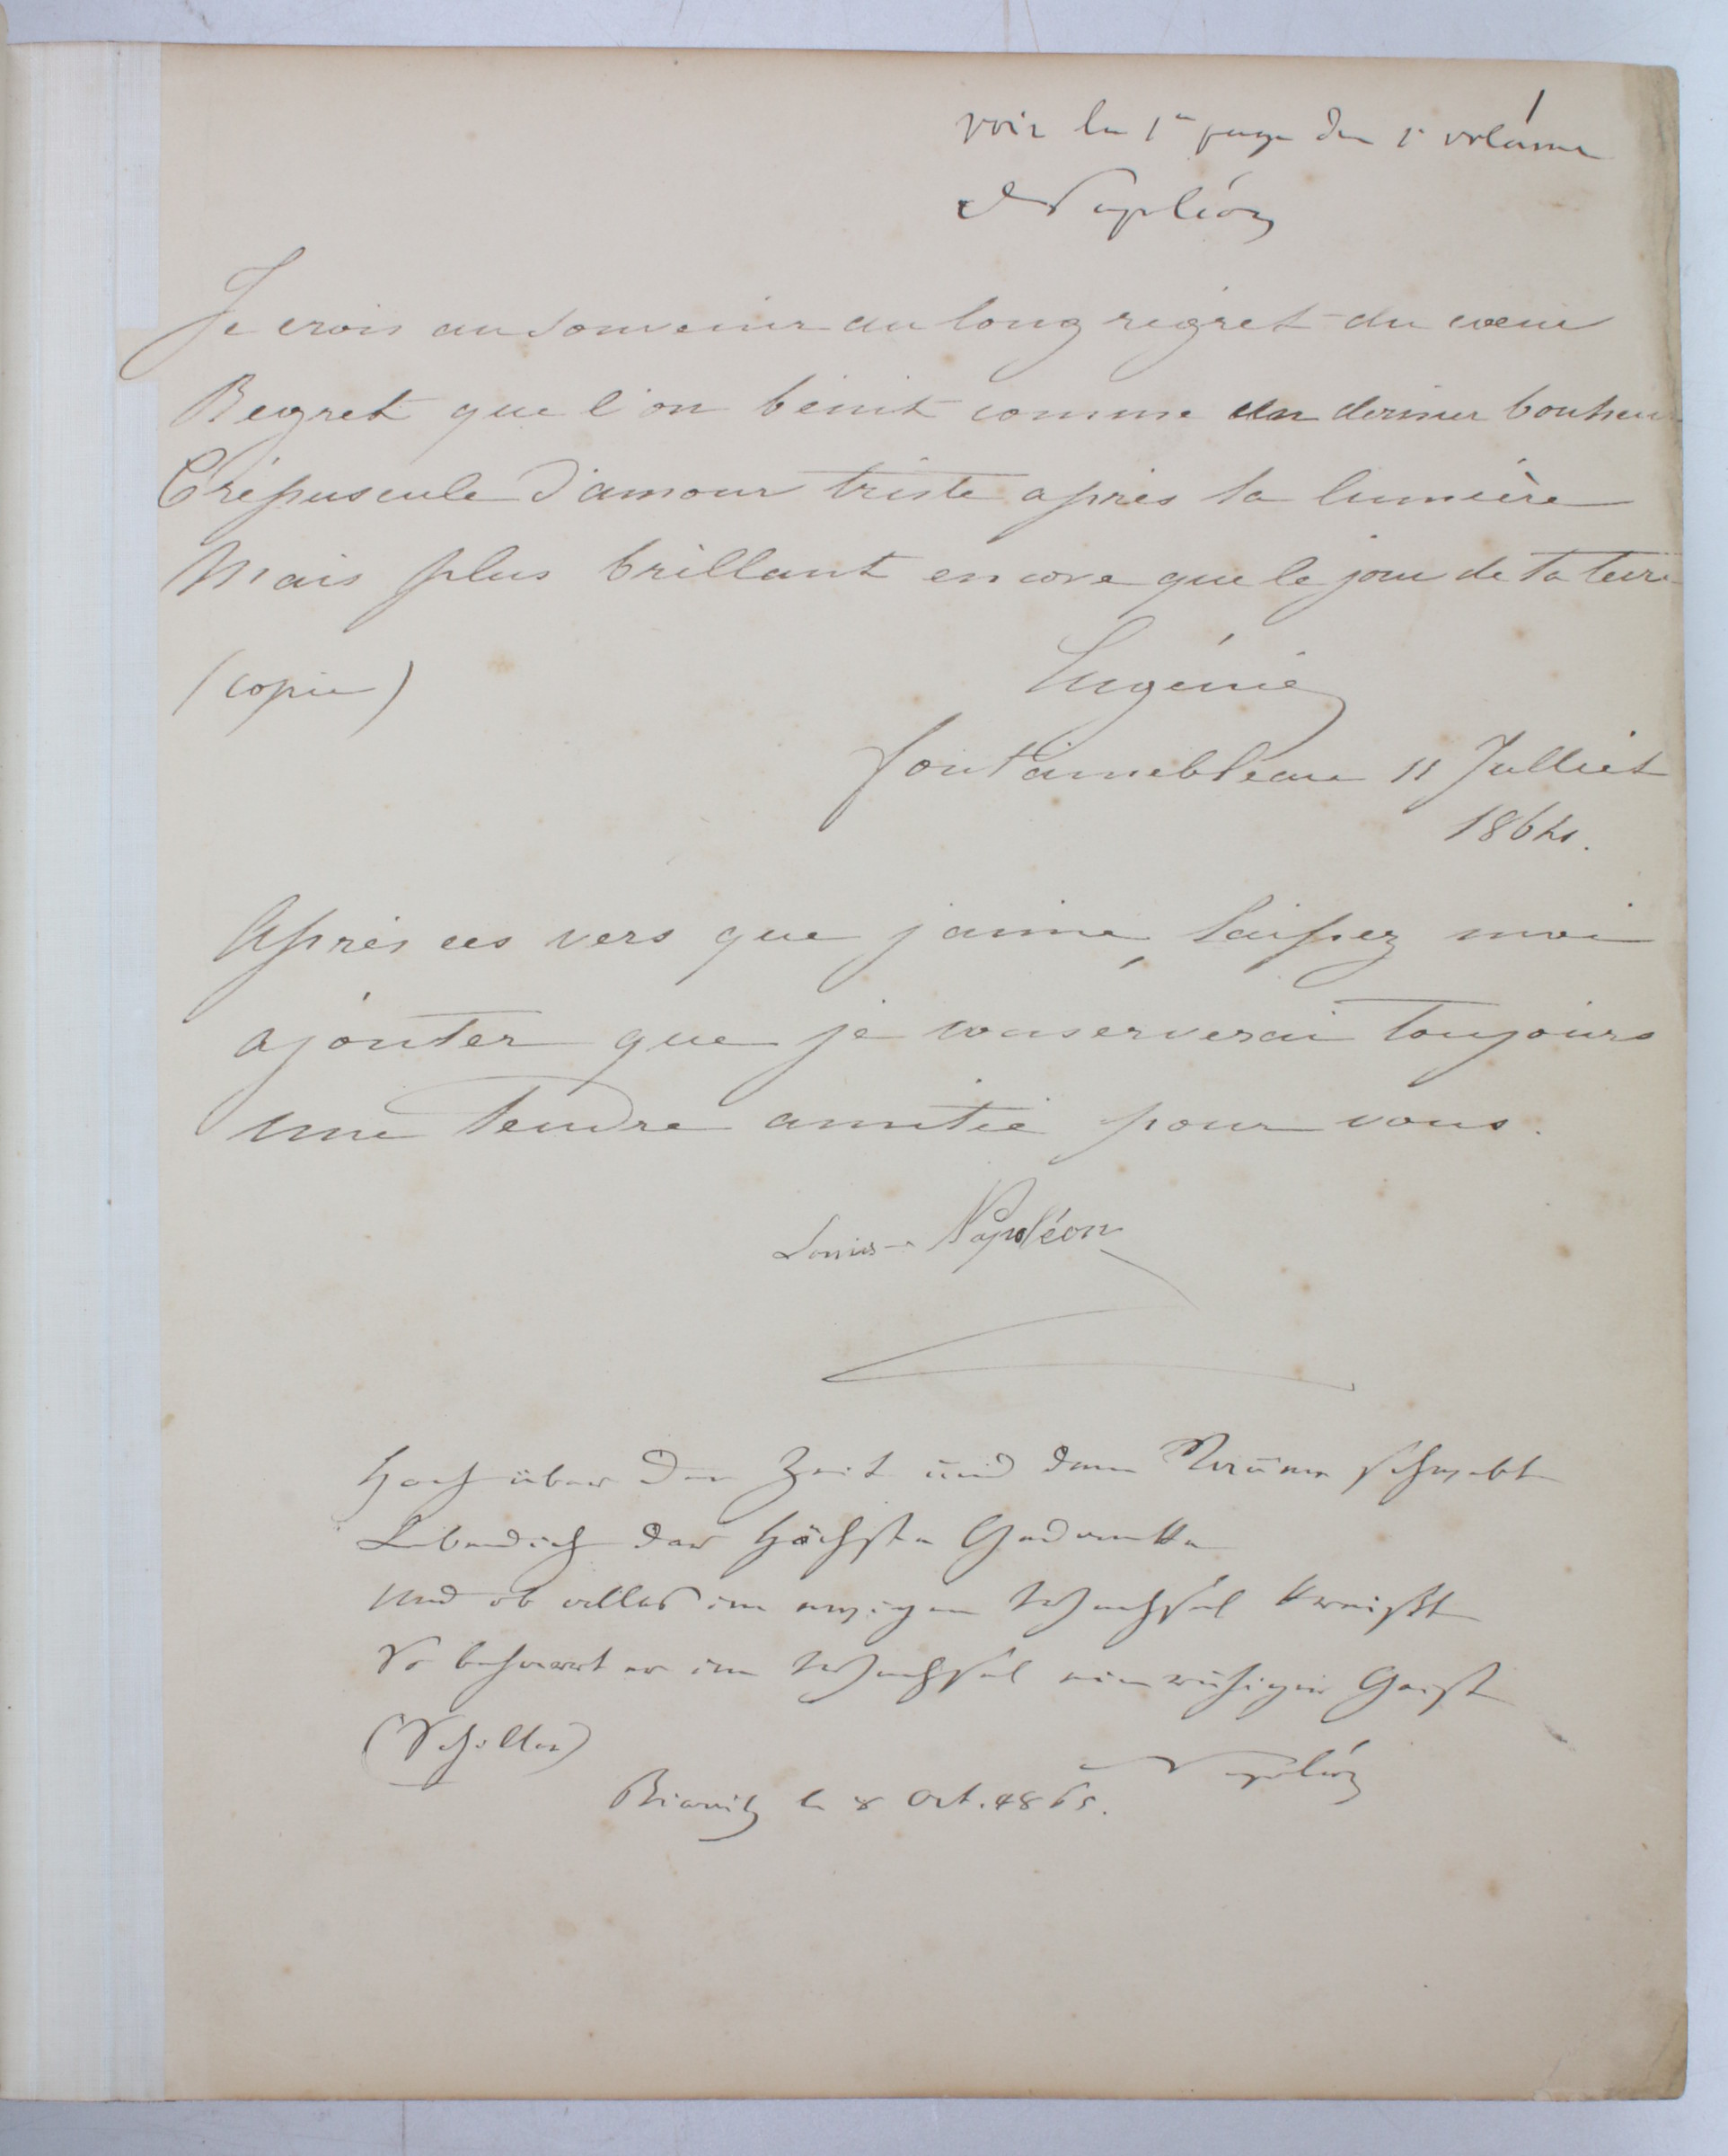 voir la 1e page du 1r volume
Napoléon
Je crois au souvenir au long regret du cœur
Regret que l'on bénit comme un dernier bonheur
Crépuscule d'amour triste après la lumière
Mais plus brillant encore que le jour de la terre
(copie)
Eugénie
Fontainebleau 11 Julliet
1864.
Après ces vers que j'aime, laissez moi
ajouter que je conserverai toujours
une tendre amitié pour vous.
Louis-Napoléon
Hoch über der Zeit und dem Raume schwebt
Lebendich der höchste Gedanke
Und ob alles im ewigen Wechsel kreißt
So beharret er im Wechsel ein ruhiger Geist
(Schiller)
Napoléon
Biarritz le 8 Oct. 1865.